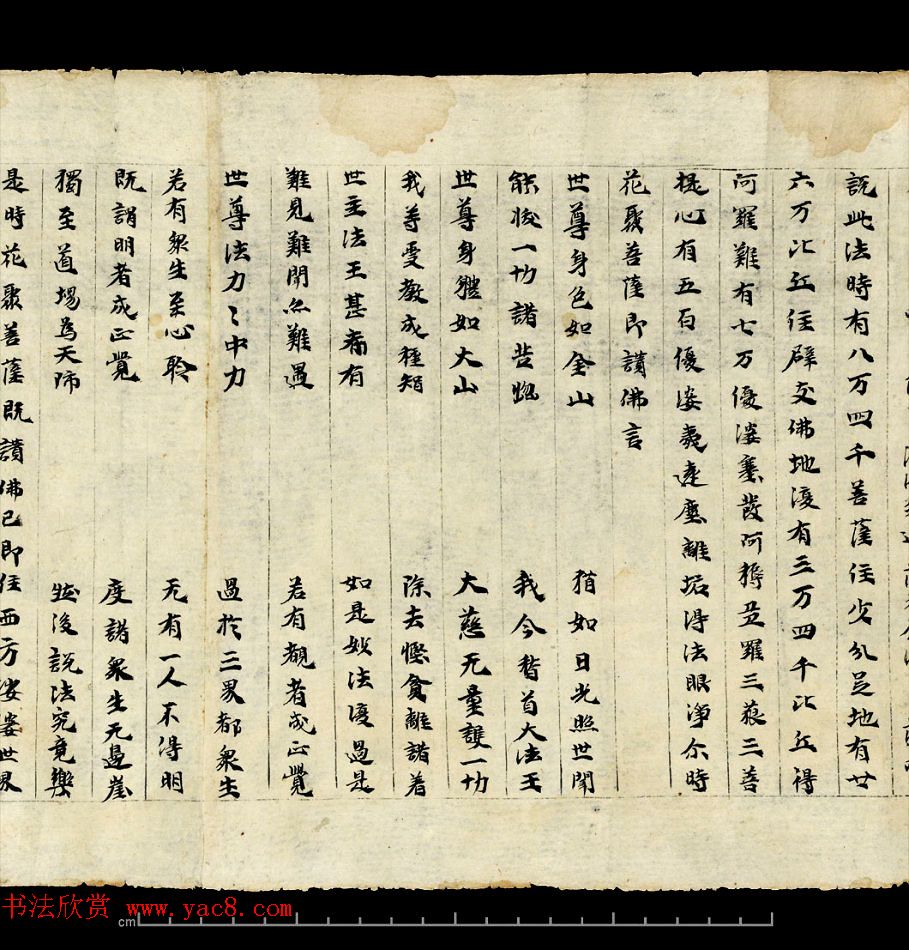 說此法時有八万四千菩薩住少分足地有廿
六万比丘住辟支佛地復有三万四千比丘得
阿羅難有七万優婆塞發阿耨多羅三藐三菩
提心有五百優婆夷遠塵離垢得法眼淨尒時
花聚菩薩即讃佛言
世尊身色如金山 猶如日光照世間
能拔一切諸苦惱 我今稽首大法王
世尊身體如大山 大慈无量護一切
我等受教成種智 除去慳貪離諸著
世主法王甚希有 如是妙法復過是
難見難聞亦難遇 若有覩者成正覺
世尊法力〻中力 過於三界都衆生
若有衆生至心聆 无有一人不得明
既謂明者成正覺 度諸衆生无邊崖
獨至道場為天師 然後說法究竟樂
是時花聚菩薩既讃佛已即往西方娑婆世界
书法欣赏 www.yac8.com
cm